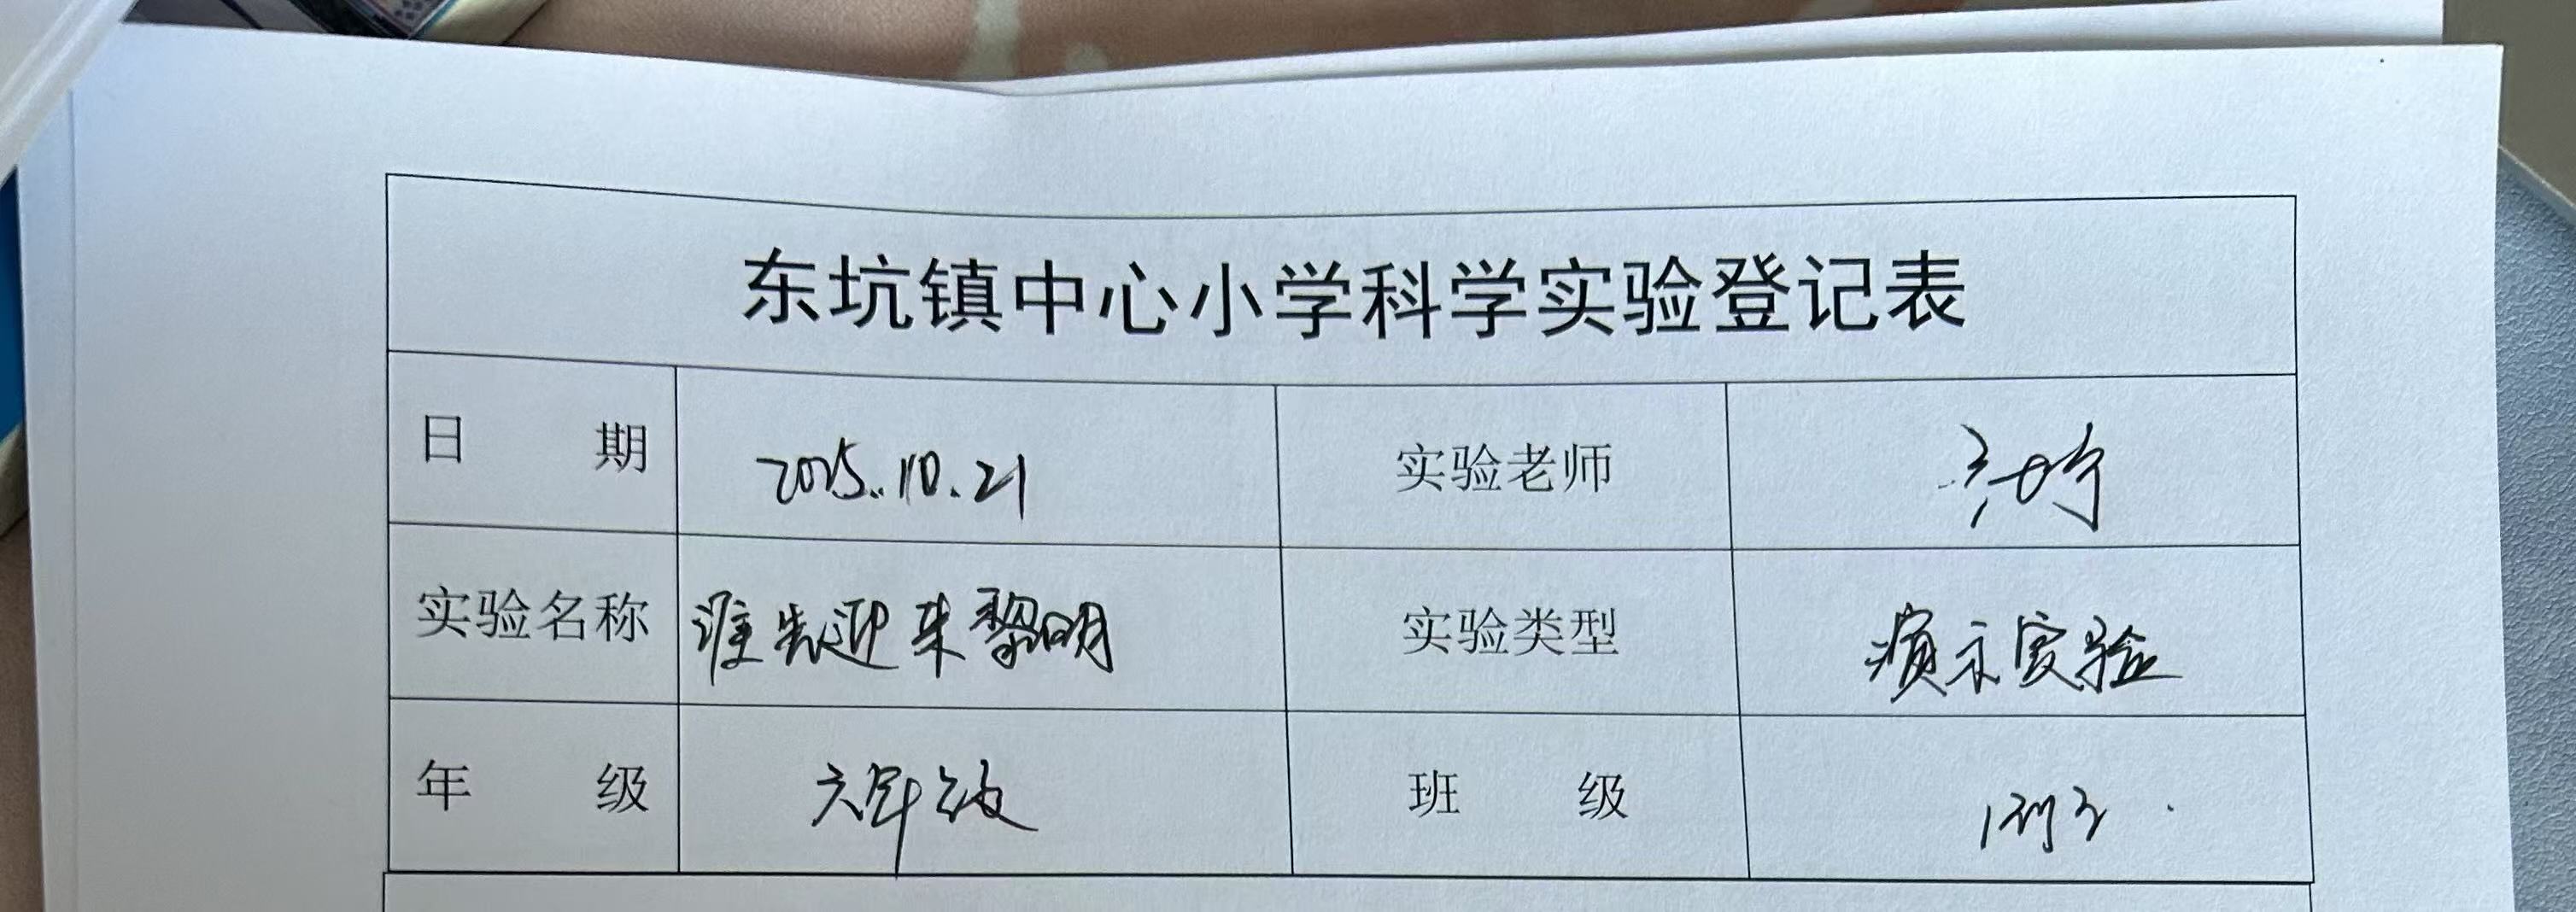 东坑镇中心小学科学实验登记表
日 期 2025.10.21 实验老师
实验名称 谁先迎来黎明 实验类型 演示实验
年 级 六年级 班 级